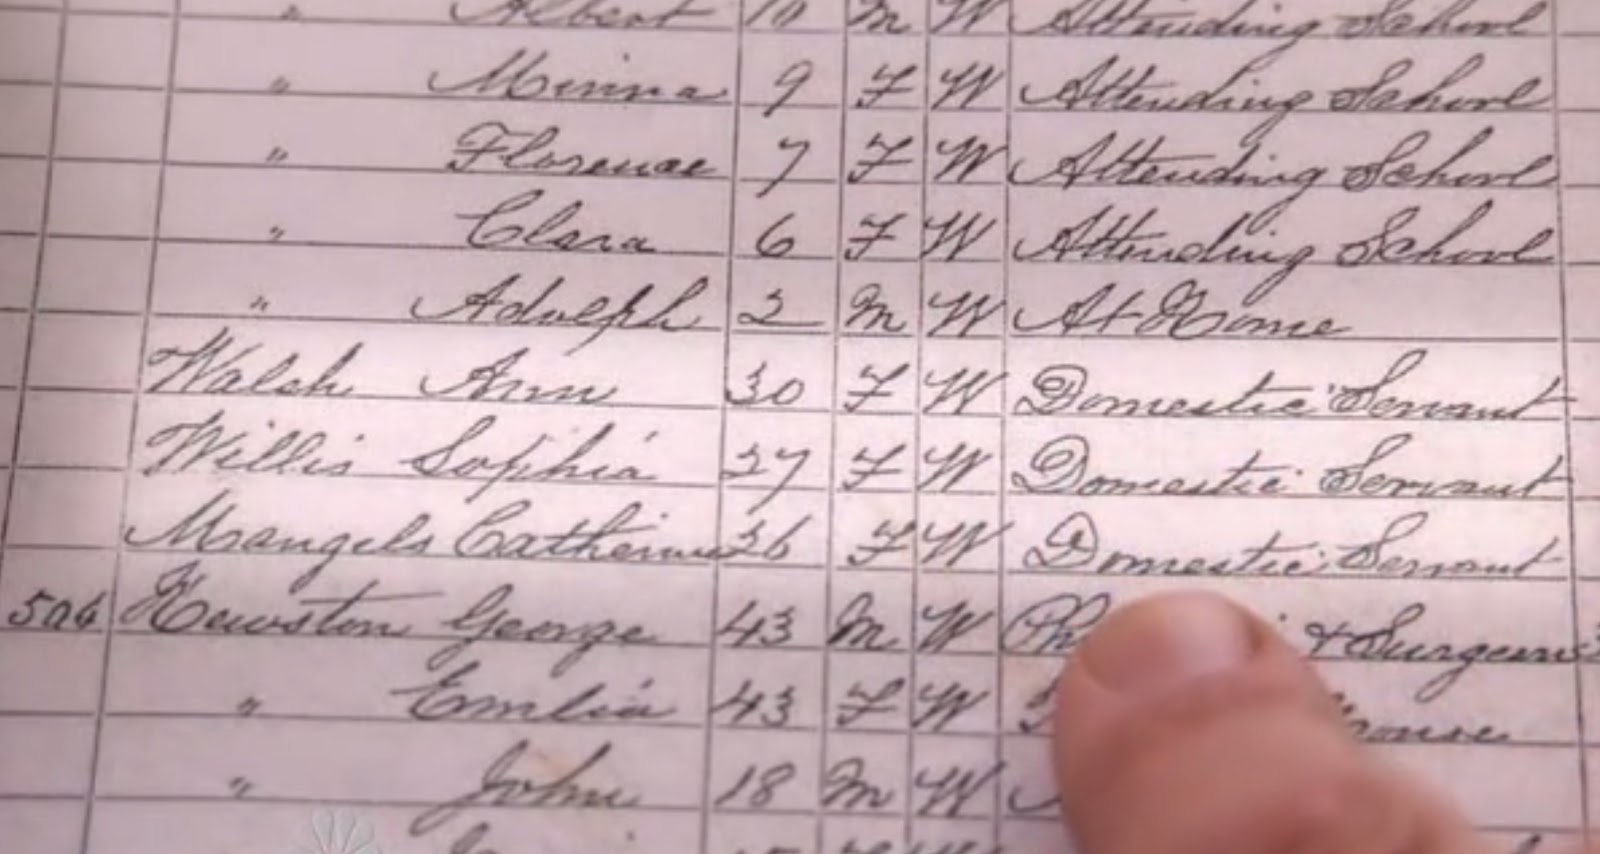 " Albert 10 M W Attending School
" Minna 9 F W Attending School
" Florence 7 F W Attending School
" Clara 6 F W Attending School
" Adolph 2 M W At Home
Walsh Ann 30 F W Domestic Servant
Willis Sophia 27 F W Domestic Servant
Mangels Catherine 36 F W Domestic Servant
506 Hewston George 43 M W & Surgeon
" Emlia 43 F W House
" John 18 M W